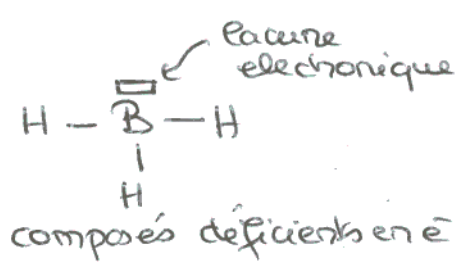 lacune
electronique
H - B - H
H
composés déficients en ē